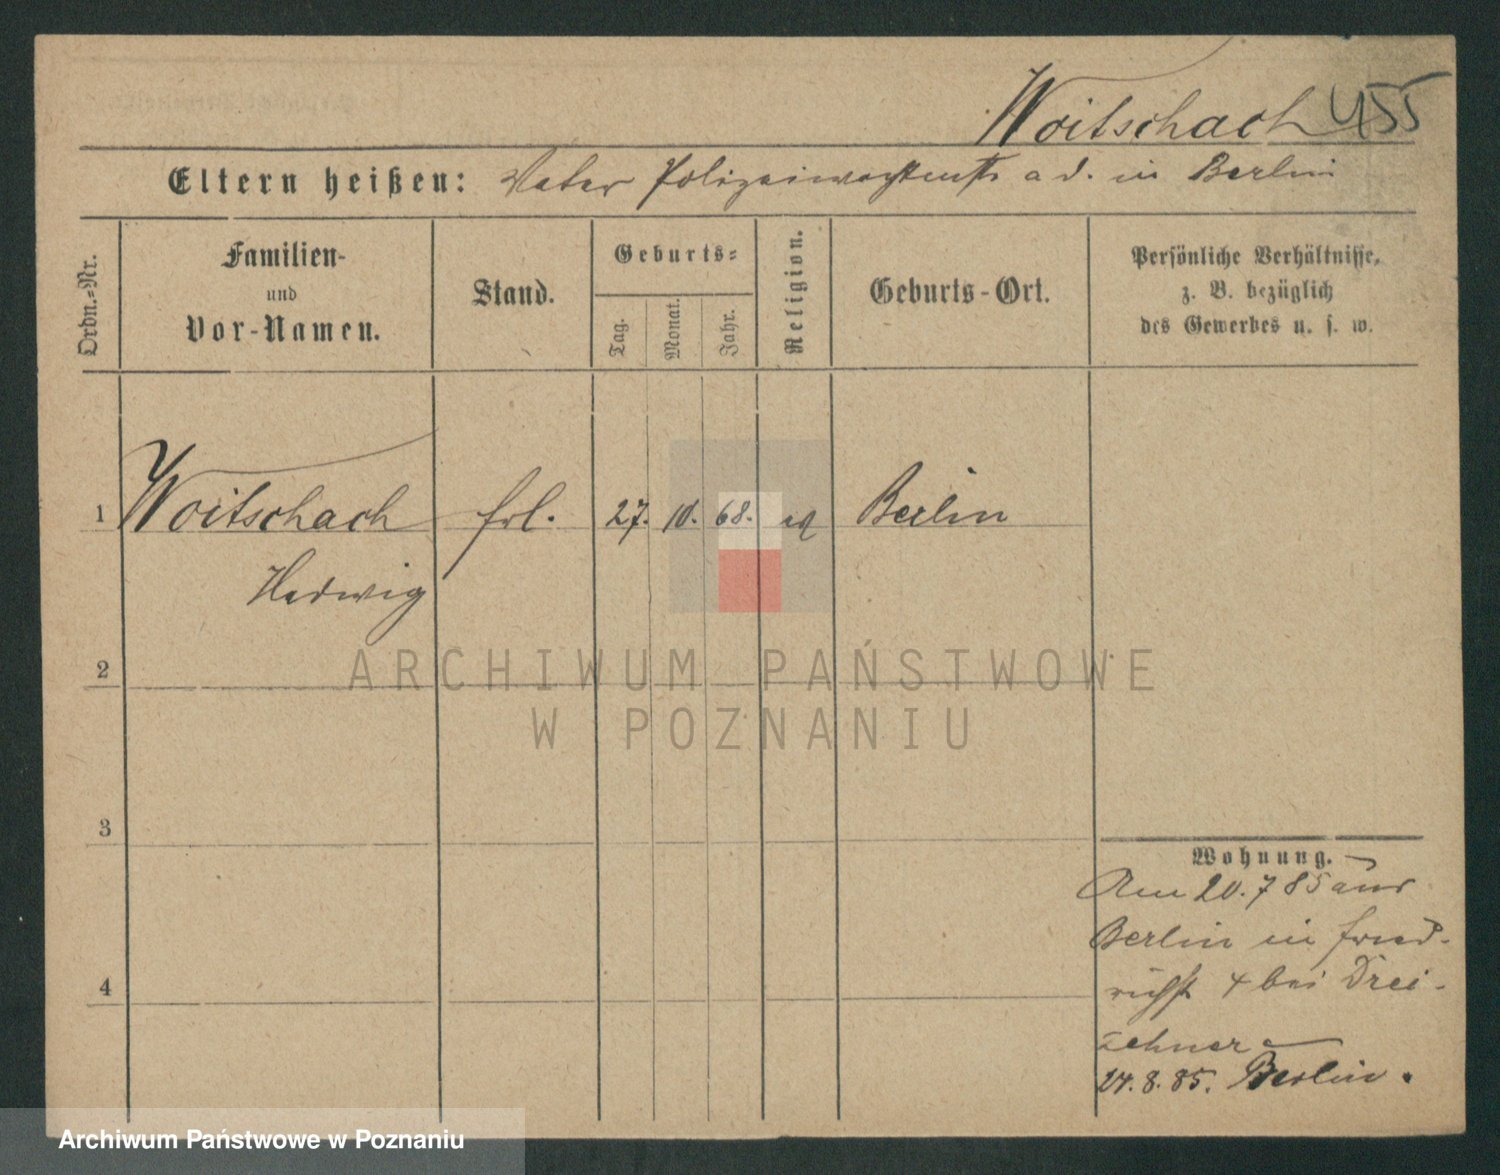 Woitschach 455
Eltern heißen: Vater Polizeiwachtmstr a d. in Berlin
Ordn.-Nr.
Familien-
und
Vor-Namen.
Stand.
Geburts-
Tag.
Monat.
Jahr.
Religion.
Geburts-Ort.
Persönliche Verhältnisse,
z. B. bezüglich
des Gewerbes u. s. w.
1 Woitschach frl. 27. 10. 68. ev Berlin
Hedwig
2
3
4
Wohnung.
Am 20. 7 85 aus
Berlin in Fried-
richst 4 bei Drei-
zehner
24. 8. 85. Berlin.
ARCHIWUM PAŃSTWOWE
W POZNANIU
Archiwum Państwowe w Poznaniu